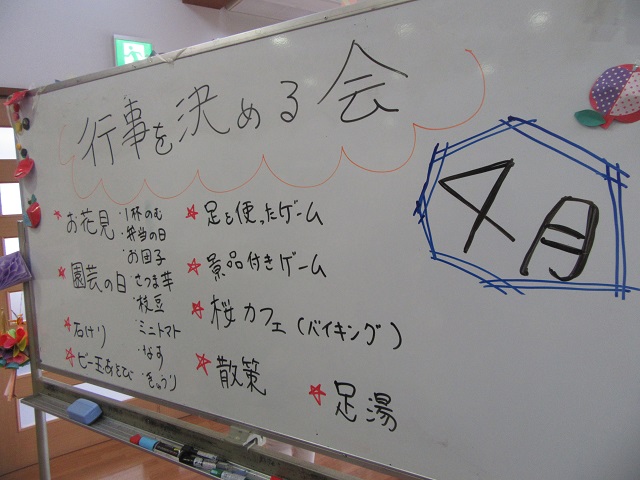 行事を決める会
4月
☆お花見 ・1杯のむ
・弁当の日
・お団子
☆園芸の日 ・さつま芋
・枝豆
・ミニトマト
・なす
・きゅうり
☆石けり
☆ビー玉あそび
☆足を使ったゲーム
☆景品付きゲーム
☆桜カフェ(バイキング)
☆散策
☆足湯